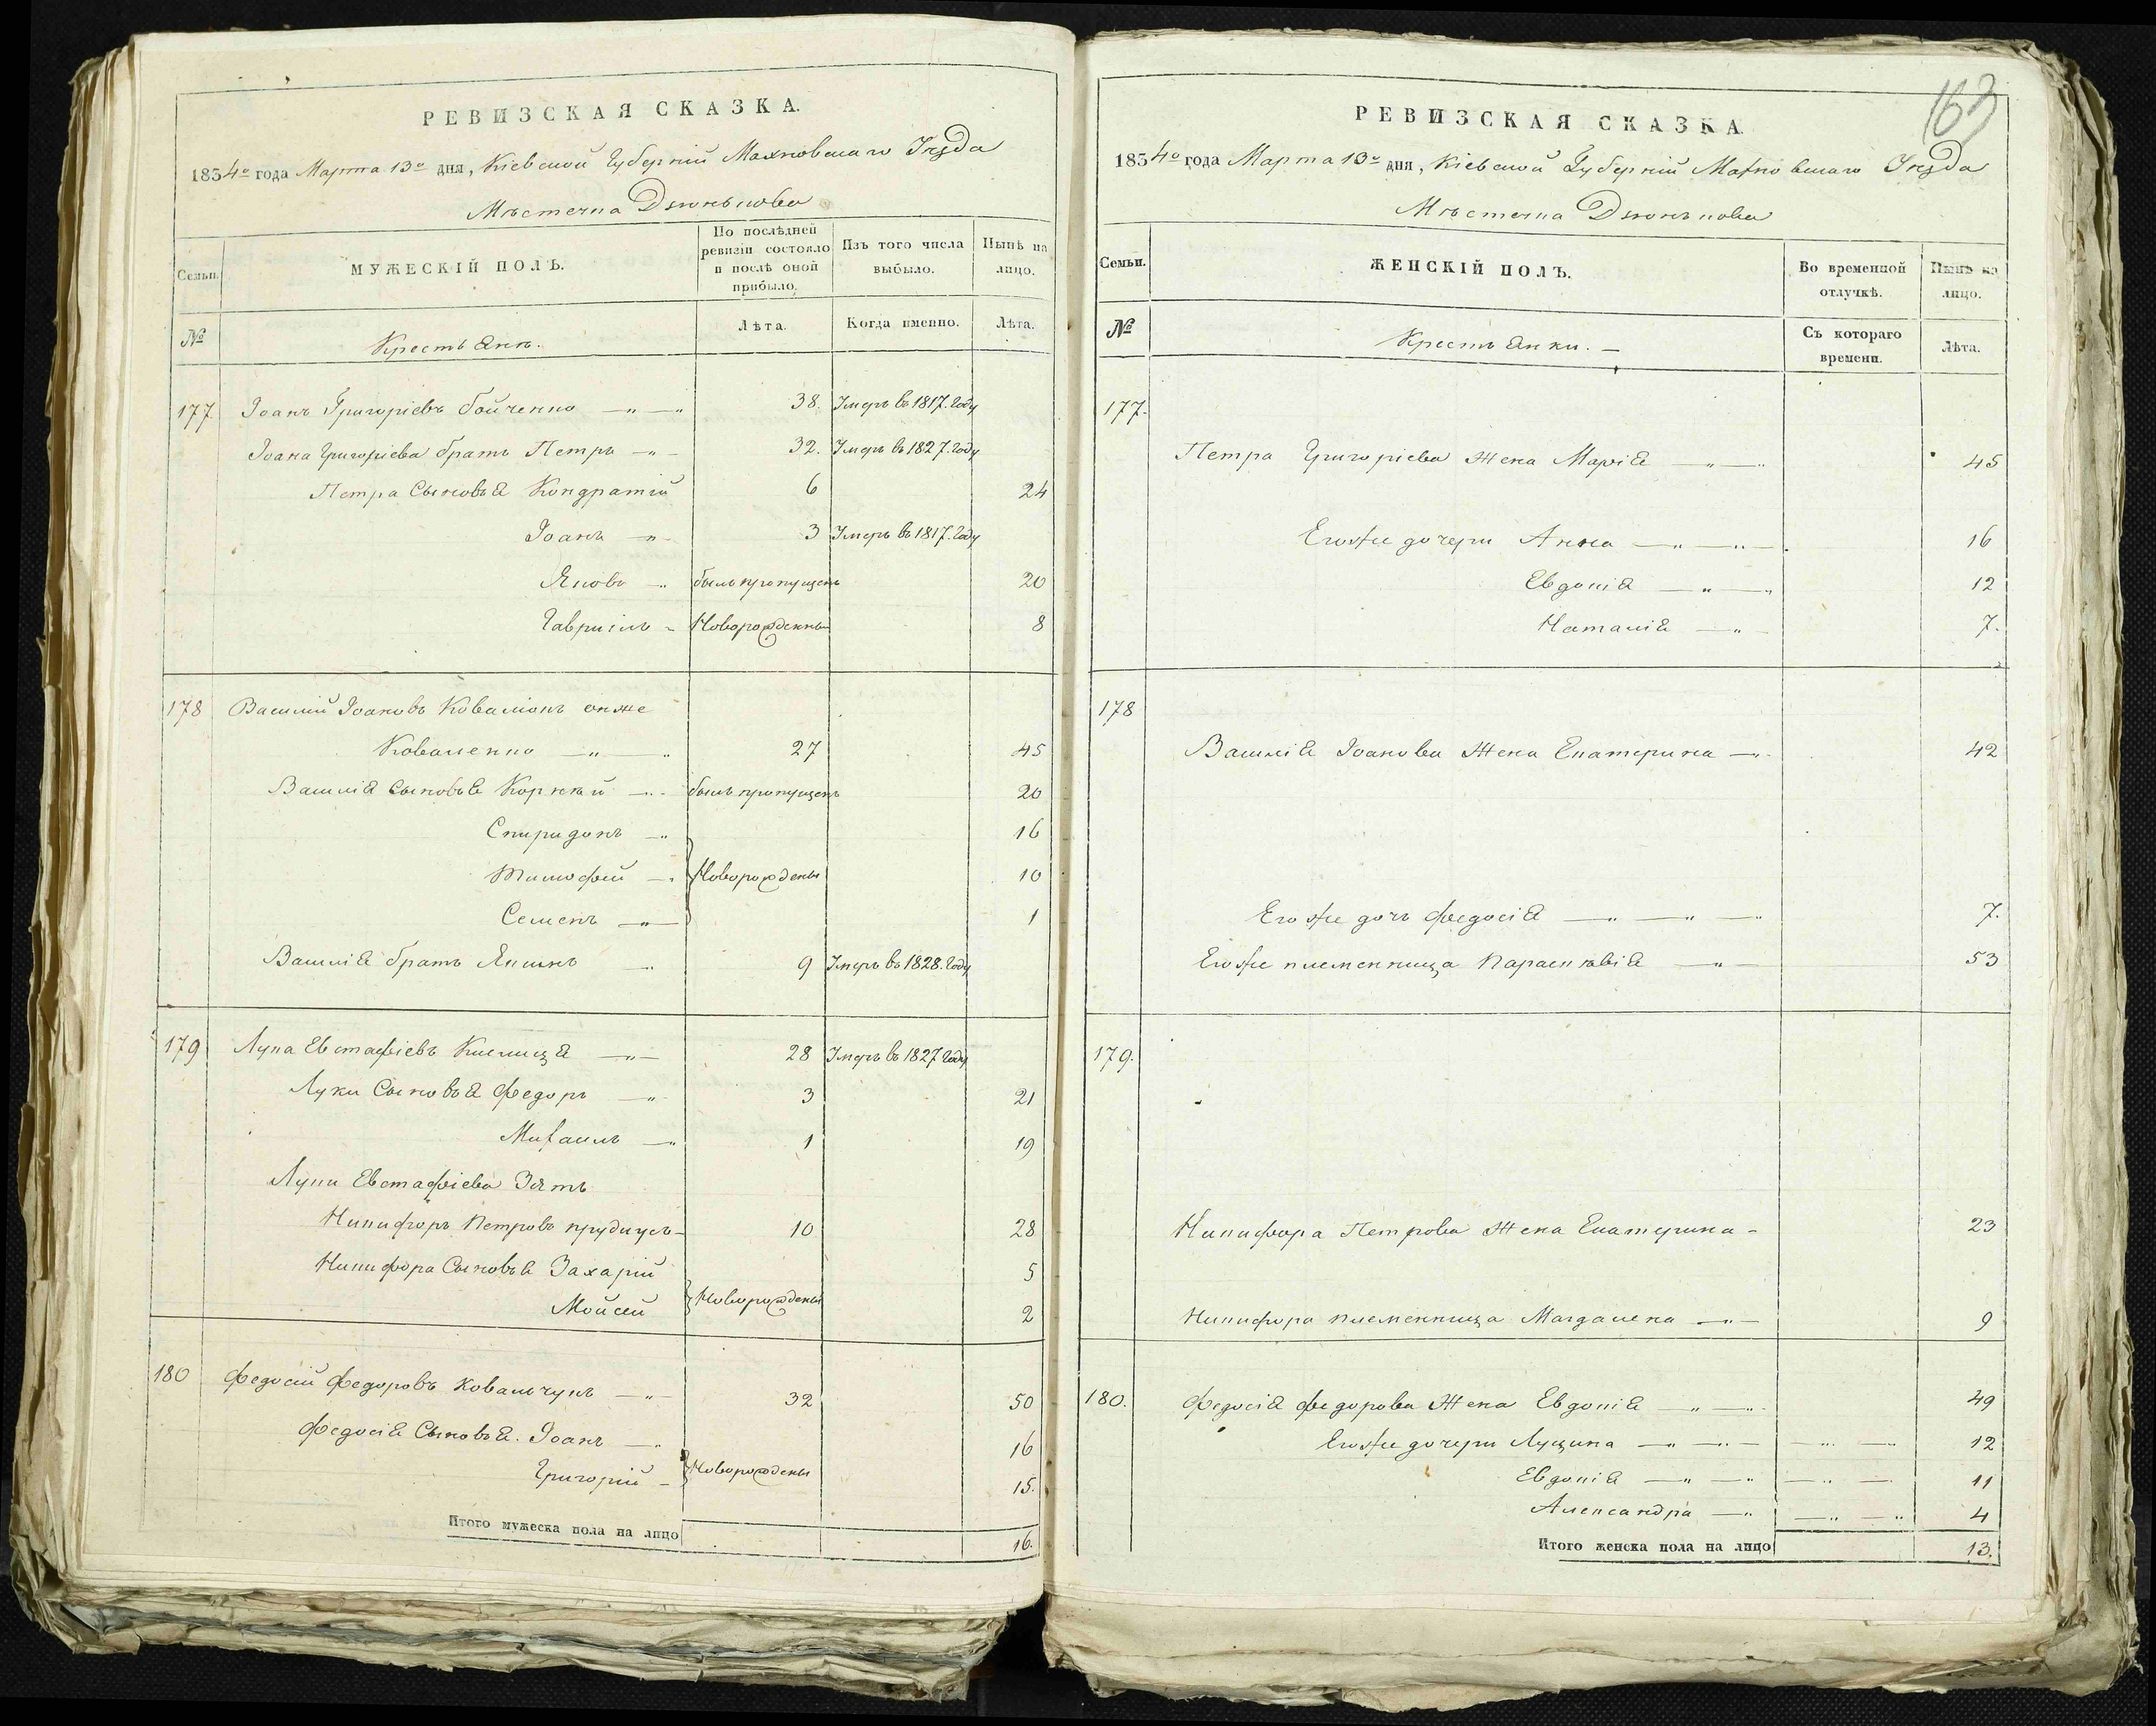 РЕВИЗСКАЯ СКАЗКА.
1834го года Марта 13го дня, Кіевской Губерніи Махновскаго Уѣзда
Мѣстечка Дзюнькова
Семьи.
МУЖЕСКІЙ ПОЛЪ.
По послѣдней ревизіи состояло и послѣ оной прибыло.
Изъ того числа выбыло.
Нынѣ на лицо.
№
Крестьяне.
Лѣта.
Когда именно.
Лѣта.
177. Іоанъ Григоріевъ Бойченко 38. Умеръ въ 1817. году
Іоана Григоріева братъ Петръ 32. Умеръ въ 1827. году
Петра Сыновья Кондратій 6 24
Іоанъ 3 Умеръ въ 1817. году
Яковъ былъ пропущенъ 20
Гавриилъ Новорожденны 8
178 Василий Іоановъ Ковалионъ онже
Коваленко 27 45
Василія Сыновья Корнѣй былъ пропущенъ 20
Спиридонъ 16
Тимофей Новорождены 10
Семенъ 1
Василія братъ Якимъ 9 Умеръ въ 1828. году
179 Лука Евстафіевъ Кислиця 28 Умеръ въ 1827 году
Луки Сыновья Федоръ 3 21
Михаилъ 1 19
Луки Евстафіева Зять
Никифоръ Петровъ 10 28
Никифора Сыновья Захарій 5
Мойсей Новорождены 2
180 Федосій Федоровъ Ковальчукъ 32 50
Федосія Сыновья. Іоанъ 16
Григорій Новорождены 15.
Итого мужеска пола на лицо 16.
163
РЕВИЗСКАЯ СКАЗКА
1834го года Марта 13го дня, Кіевской Губерніи Махновскаго Уѣзда
Мѣстечка Дзюнькова
Семьи.
ЖЕНСКІЙ ПОЛЪ.
Во временной отлучкѣ.
Нынѣ на лицо.
№
Крестьянки.
Съ котораго времени.
Лѣта.
177.
Петра Григоріева Жена Марія 45
Егоже дочери Анна 16
Евдокія 12
Наталія 7.
178
Василія Іоанова Жена Екатерина 42
Егоже дочь Федосія 7.
Егоже племенница Параскѣвія 53
179.
Никифора Петрова Жена Екатерина 23
Никифора племенница Магдалена 9
180. Федосія Федорова Жена Евдокія 49
Егоже дочери Луцына 12
Евдокія 11
Александра 4
Итого женска пола на лицо 13.